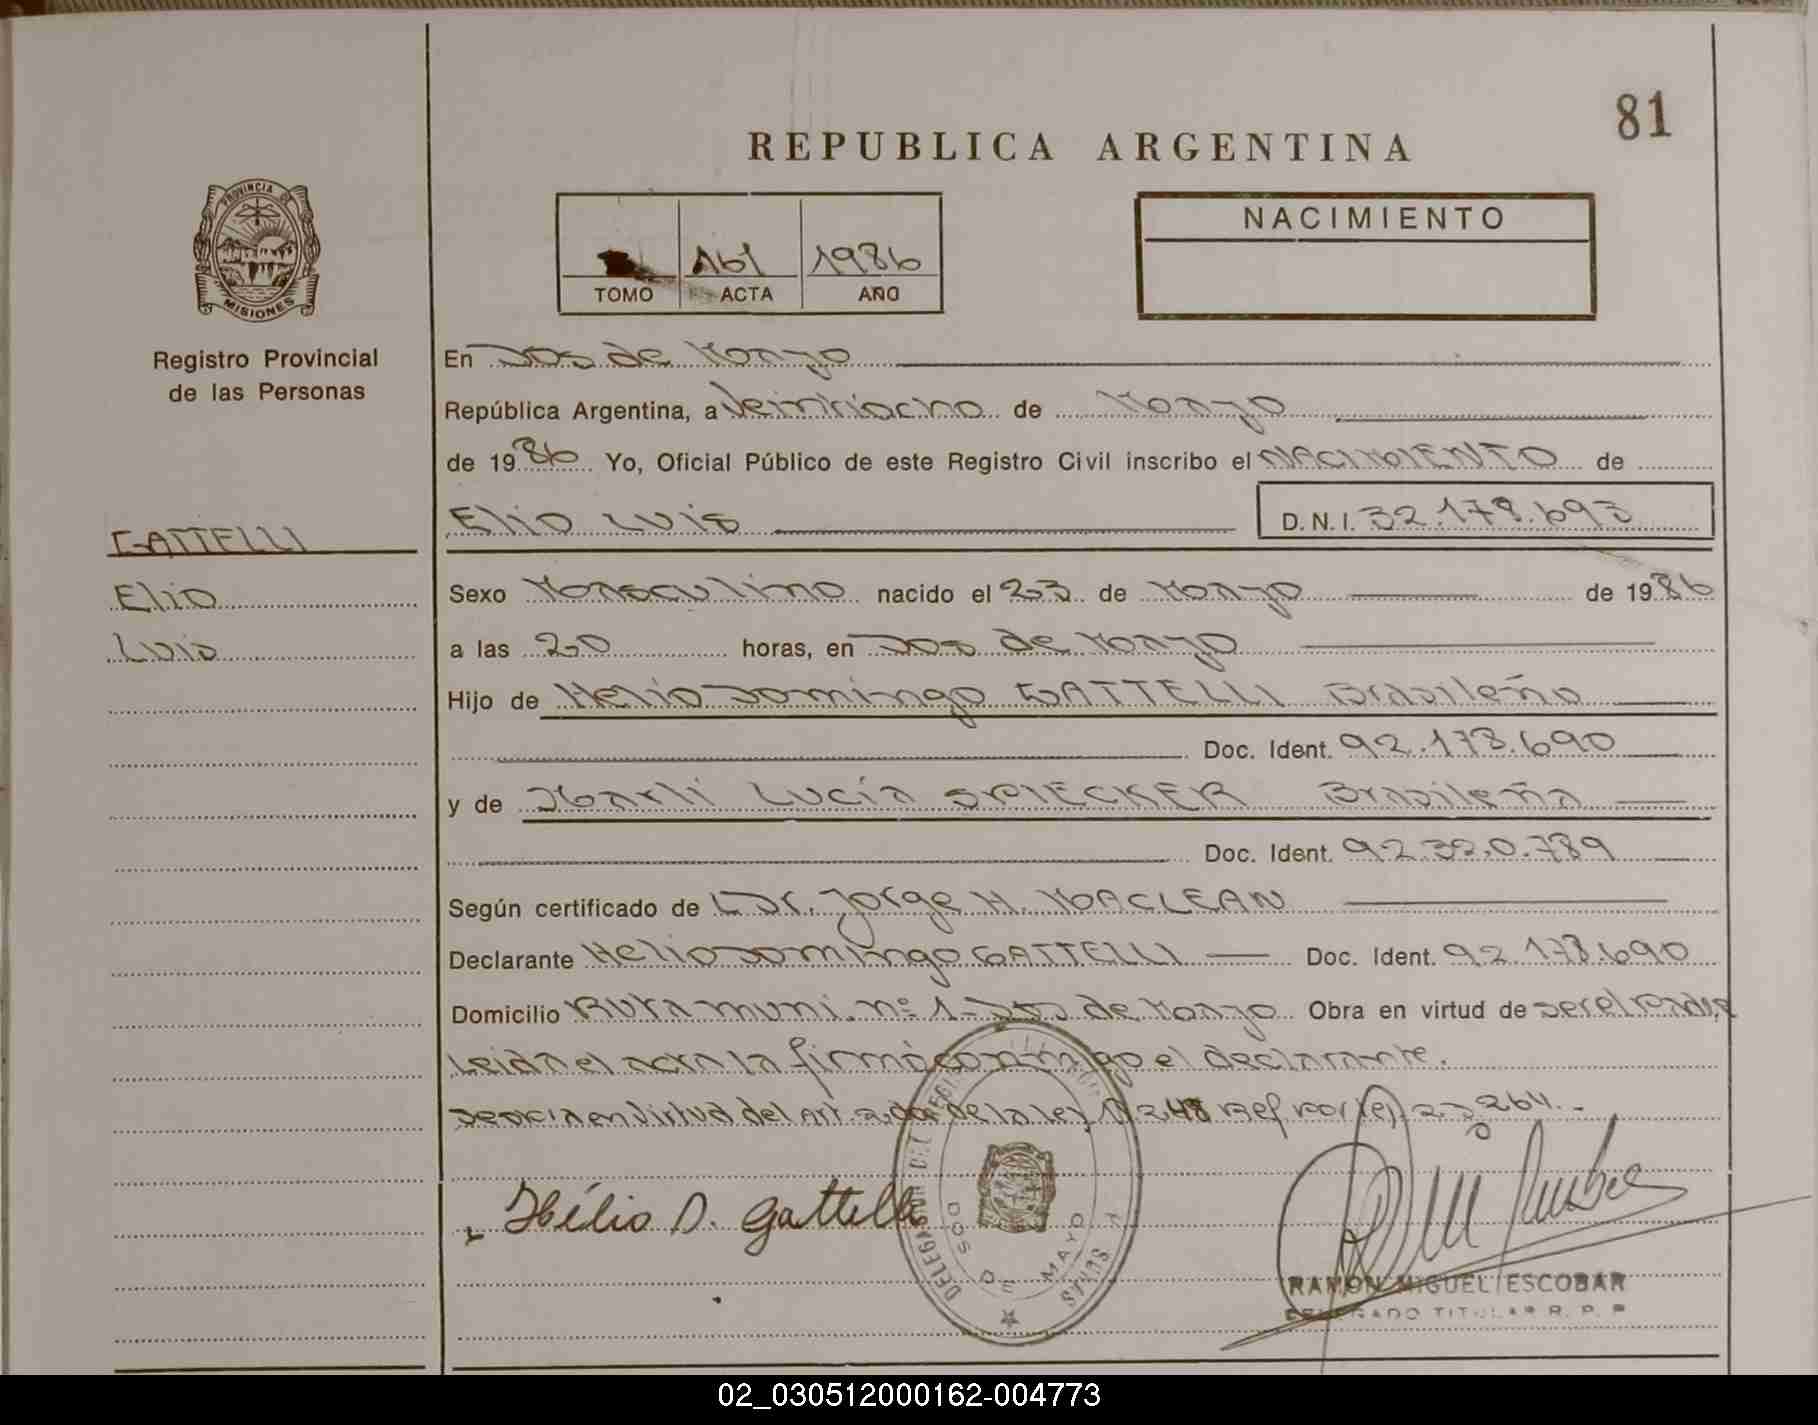 81
REPUBLICA ARGENTINA
PROVINCIA DE
MISIONES
Registro Provincial
de las Personas
161 1986
TOMO ACTA AÑO
NACIMIENTO
En Dos de Mayo
República Argentina, a Veintiocho de Mayo
de 1986 Yo, Oficial Público de este Registro Civil inscribo el NACIMIENTO de
GATTELLI
Elio
Luis
Elio Luis D.N.I. 32.178.693
Sexo Masculino nacido el 23 de Mayo de 1986
a las 20 horas, en Dos de Mayo
Hijo de Helio Domingo GATTELLI Brasileño
Doc. Ident. 92.178.690
y de Marli Lucía SPIECKER Brasileña
Doc. Ident. 92.320.789
Según certificado de Dr. Jorge H. MACLEAN
Declarante Helio Domingo GATTELLI Doc. Ident. 92.178.690
Domicilio Ruta muni. nº 1 - Dos de Mayo Obra en virtud de ser el padre
Leida el acta la firmó conmigo el declarante.
en virtud del Art. 2do de la ley 18248 Ref por ley 23264.-
Hélio D. Gattelli
DELEGACION DEL REGISTRO
DOS DE MAYO
RAMON MIGUEL ESCOBAR
DELEGADO TITULAR R. P. P.
02_030512000162-004773